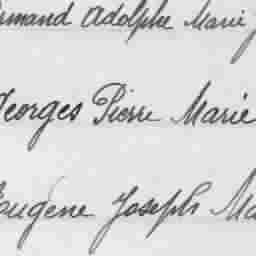 Armand Adolphe Marie
Georges Pierre Marie
Eugene Joseph Ma